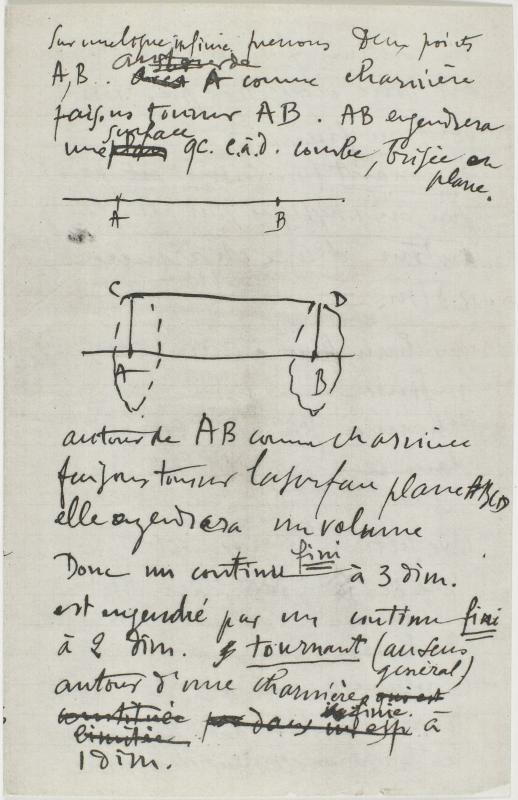 Sur une ligne infinie prenons Deux points
A, B. autour de A comme charnière
faisons tourner AB. AB engendrera
une surface qc. c.à.d. courbe, brisée ou
plane.
A B
C D
A B
autour de AB comme charnière
faisons tourner la surface plane ABCD
elle engendrera un volume
Donc un continu fini à 3 dim.
est engendré par un continu fini
à 2 dim. tournant (au sens
général)
autour d'une charnière
infinie. à
1 dim.